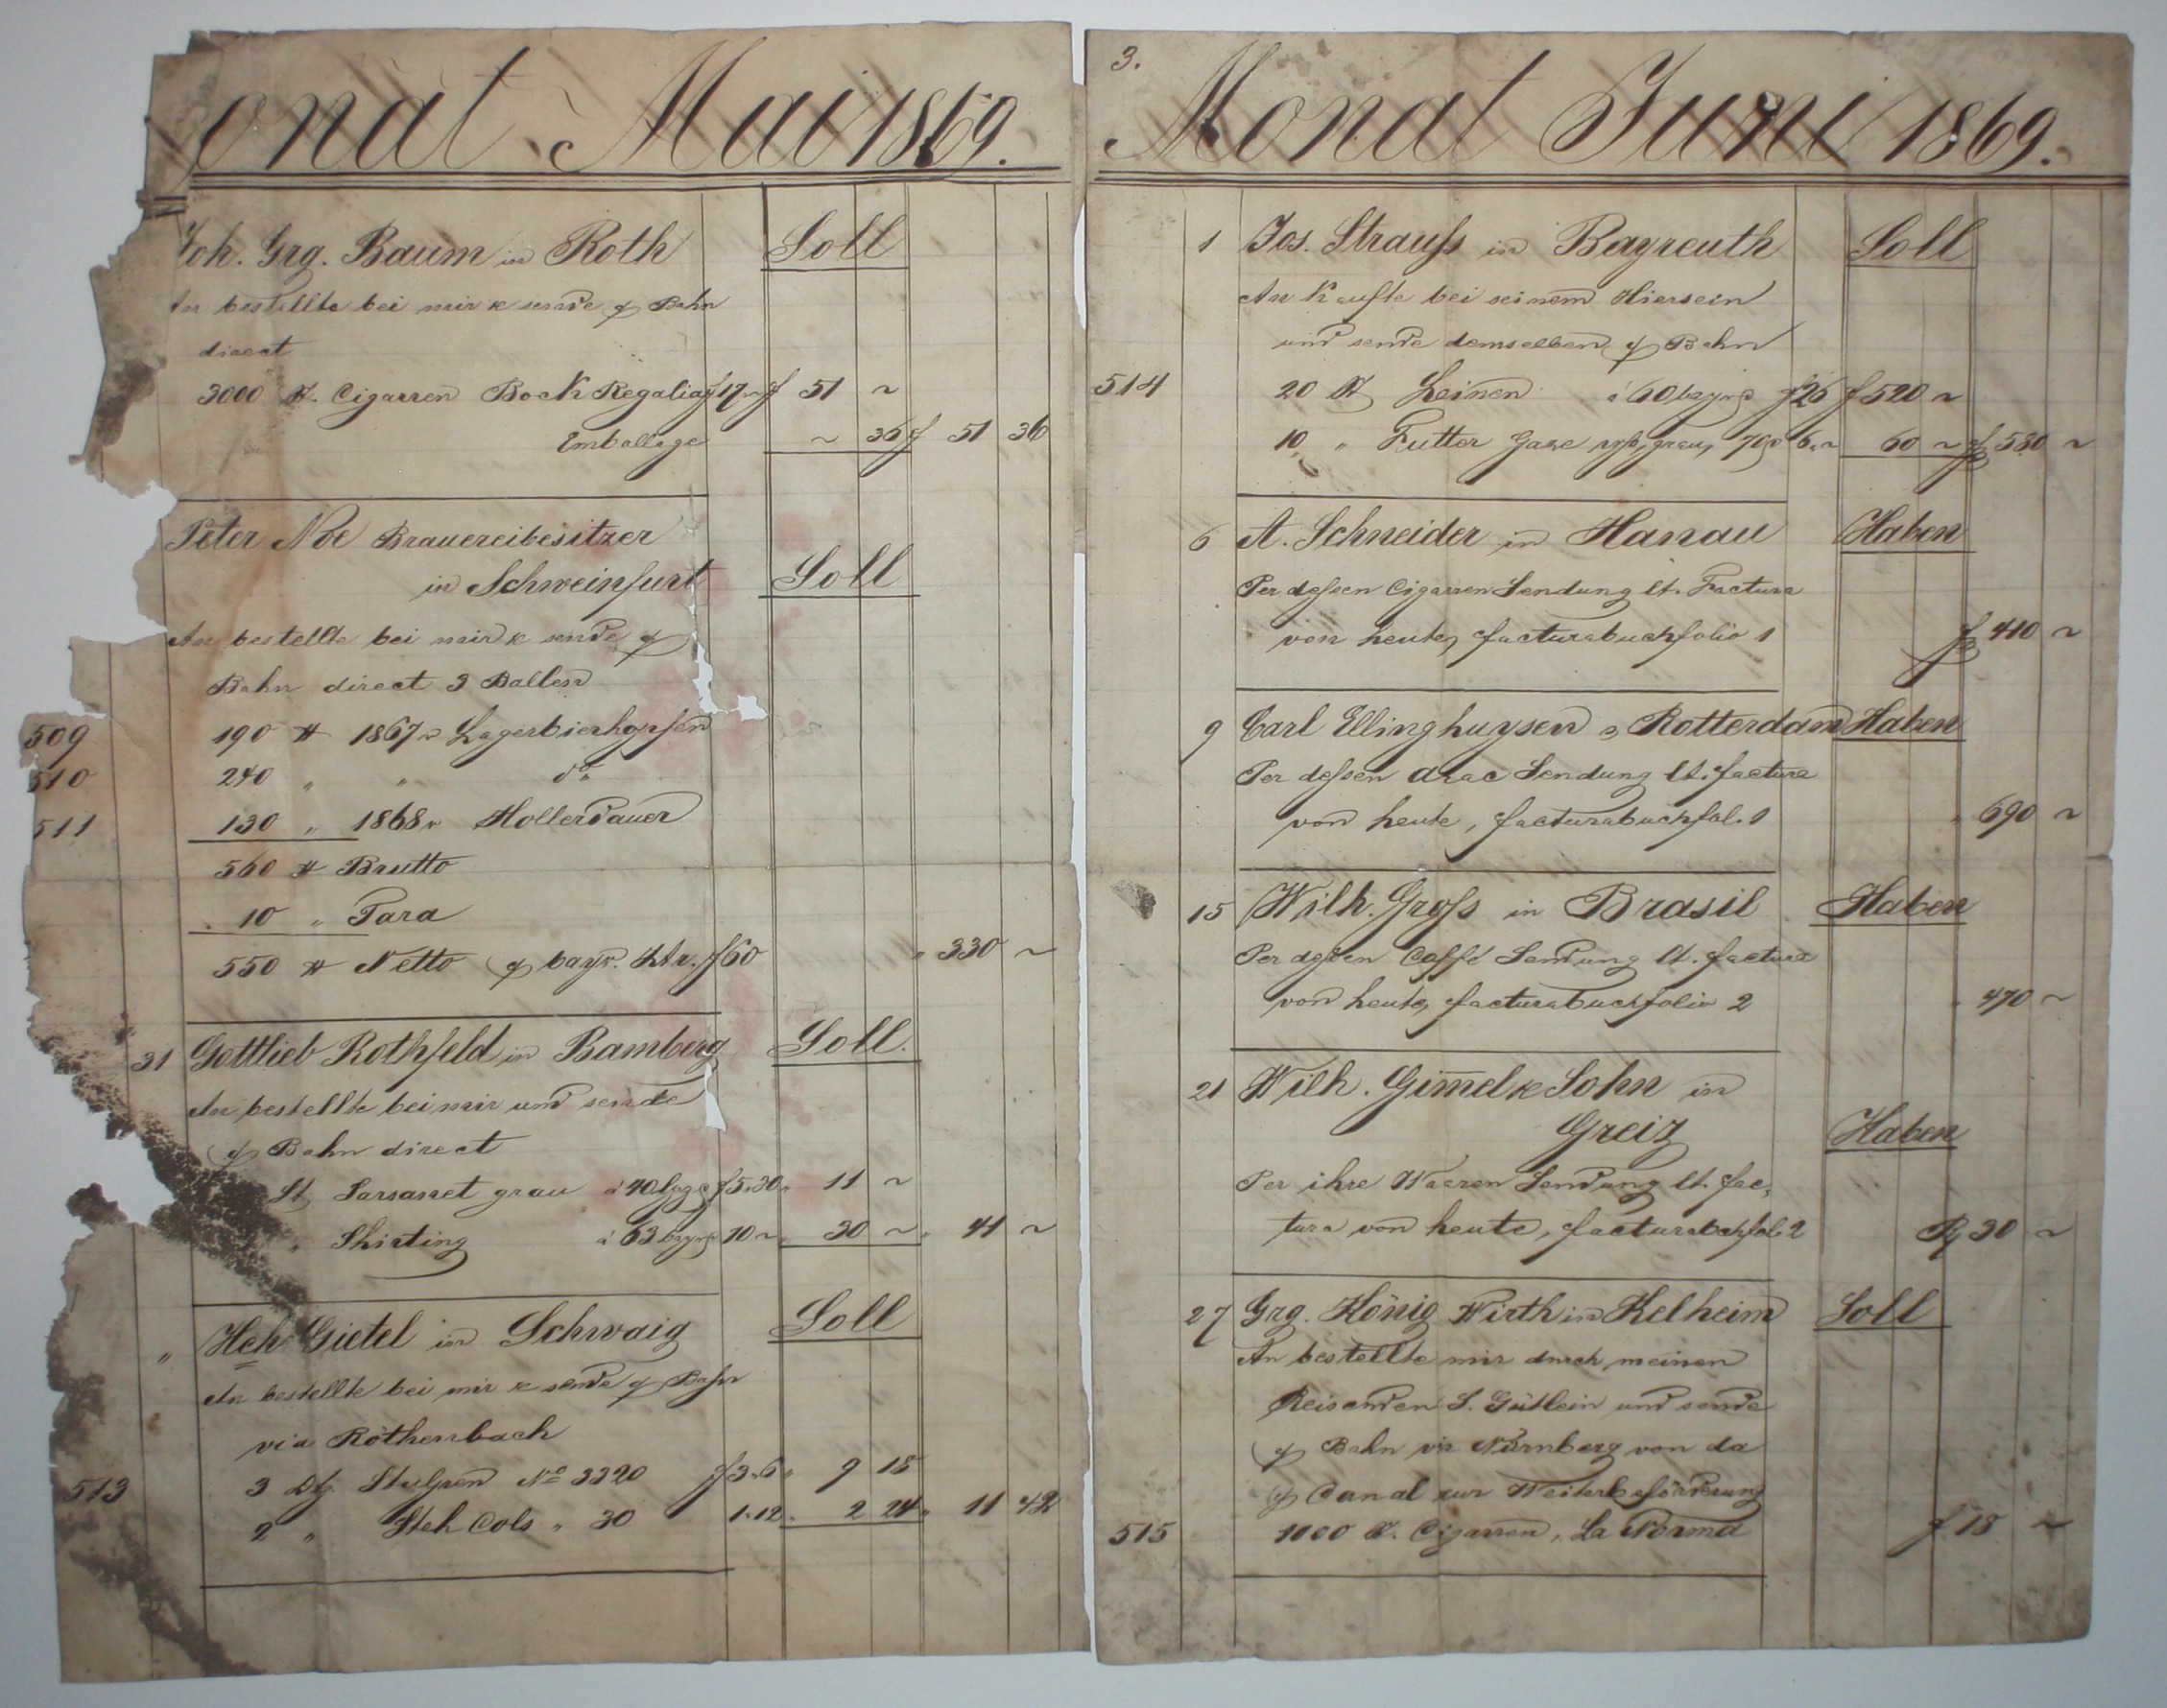 onat Mai 1869.
Joh. Grg. Baum in Roth Soll
An bestellte bei mir & sende p Bahn
direct
3000 St. Cigarren Bock Regalia f 17 ~ f 51 ~
Emballage ~ 36 f 51 36
Peter Noe Brauereibesitzer
in Schweinfurt Soll
An bestellte bei mir & sende p
Bahn direct 3 Ballen
509 190 ℔ 1867r Lagerbierhopfen
510 240 " " do
511 130 " 1868r Hollerdauer
560 ℔ Brutto
10 " Tara
550 ℔ Netto p bayr. Ztr. f 60 " 330 ~
31 Gottlieb Rothfeld in Bamberg Soll.
An bestellte bei mir und sende
p Bahn direct
St Sarsanet grau à 40 f 5.30 " 11 ~
" Shirting à 63 10 ~ " 30 ~ " 41 ~
" Hch Gietel in Schwaig Soll
An bestellte bei mir & sende p Bahn
via Röthenbach
513 3 Dtz. Stulpen No 3320 f 3.6 " 9 18
2 " Steh Cols " 30 1.12 " 2 24 " 11 42
3.
Monat Juni 1869.
1 Jos. Strauß in Bayreuth Soll
An Kaufte bei seinem Hiersein
und sende demselben p Bahn
514 20 St Leinen à 60 f 26 f 520 ~
10 " Futter Gaze grau, 70 6 ~ 60 ~ f 580 ~
6 A. Schneider in Hanau Haben
Per deßen Cigarren Sendung lt. Factura
von heute, facturabuchfolio 1 f 410 ~
9 Carl Ellinghuysen Rotterdam Haben
Per deßen Arac Sendung lt. factura
von heute, facturabuchfol. 1 690 ~
15 Wilh. Groß in Brasil Haben
Per deßen Caffé Sendung lt. factura
von heute, facturabuchfolio 2 470 ~
21 Wilh. Gim̄el & Sohn in
Greiz Haben
Per ihre Waaren Sendung lt. fac,
tura von heute, facturabchfol. 2 30 ~
27 Grg. König Wirth in Kelheim Soll
An bestellte mir durch meinen
Reisenden S. Gütlein und sende
p Bahn via Nürnberg von da
p Canal zur Weiterbeförderung
515 1000 St. Cigarren, La Norma f 18 ~